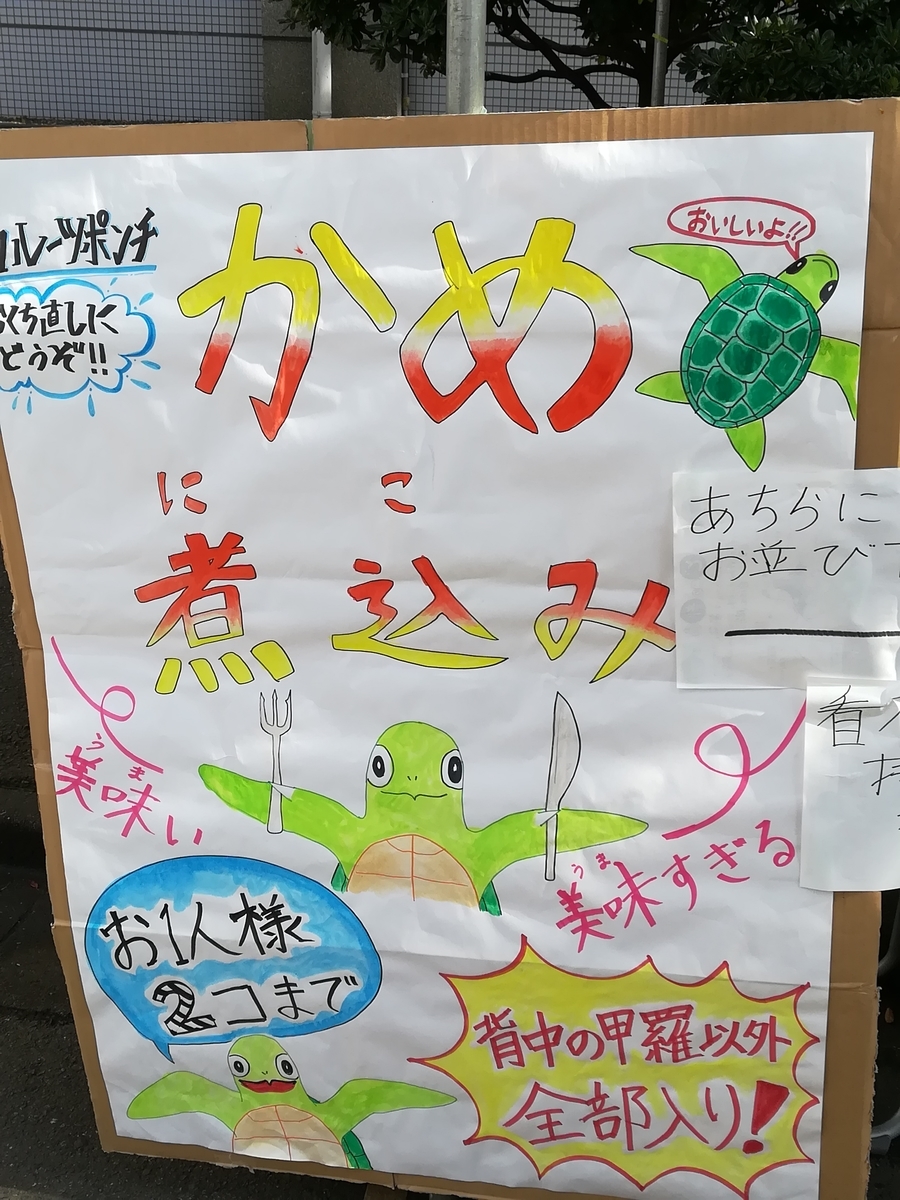 フルーツポンチ
おくち直しに
どうぞ!!
かめ
おいしいよ!!
に こ
煮込み
あちらに
お並び
うま
美味い
うま
美味すぎる
お1人様
2コまで
背中の甲羅以外
全部入り!